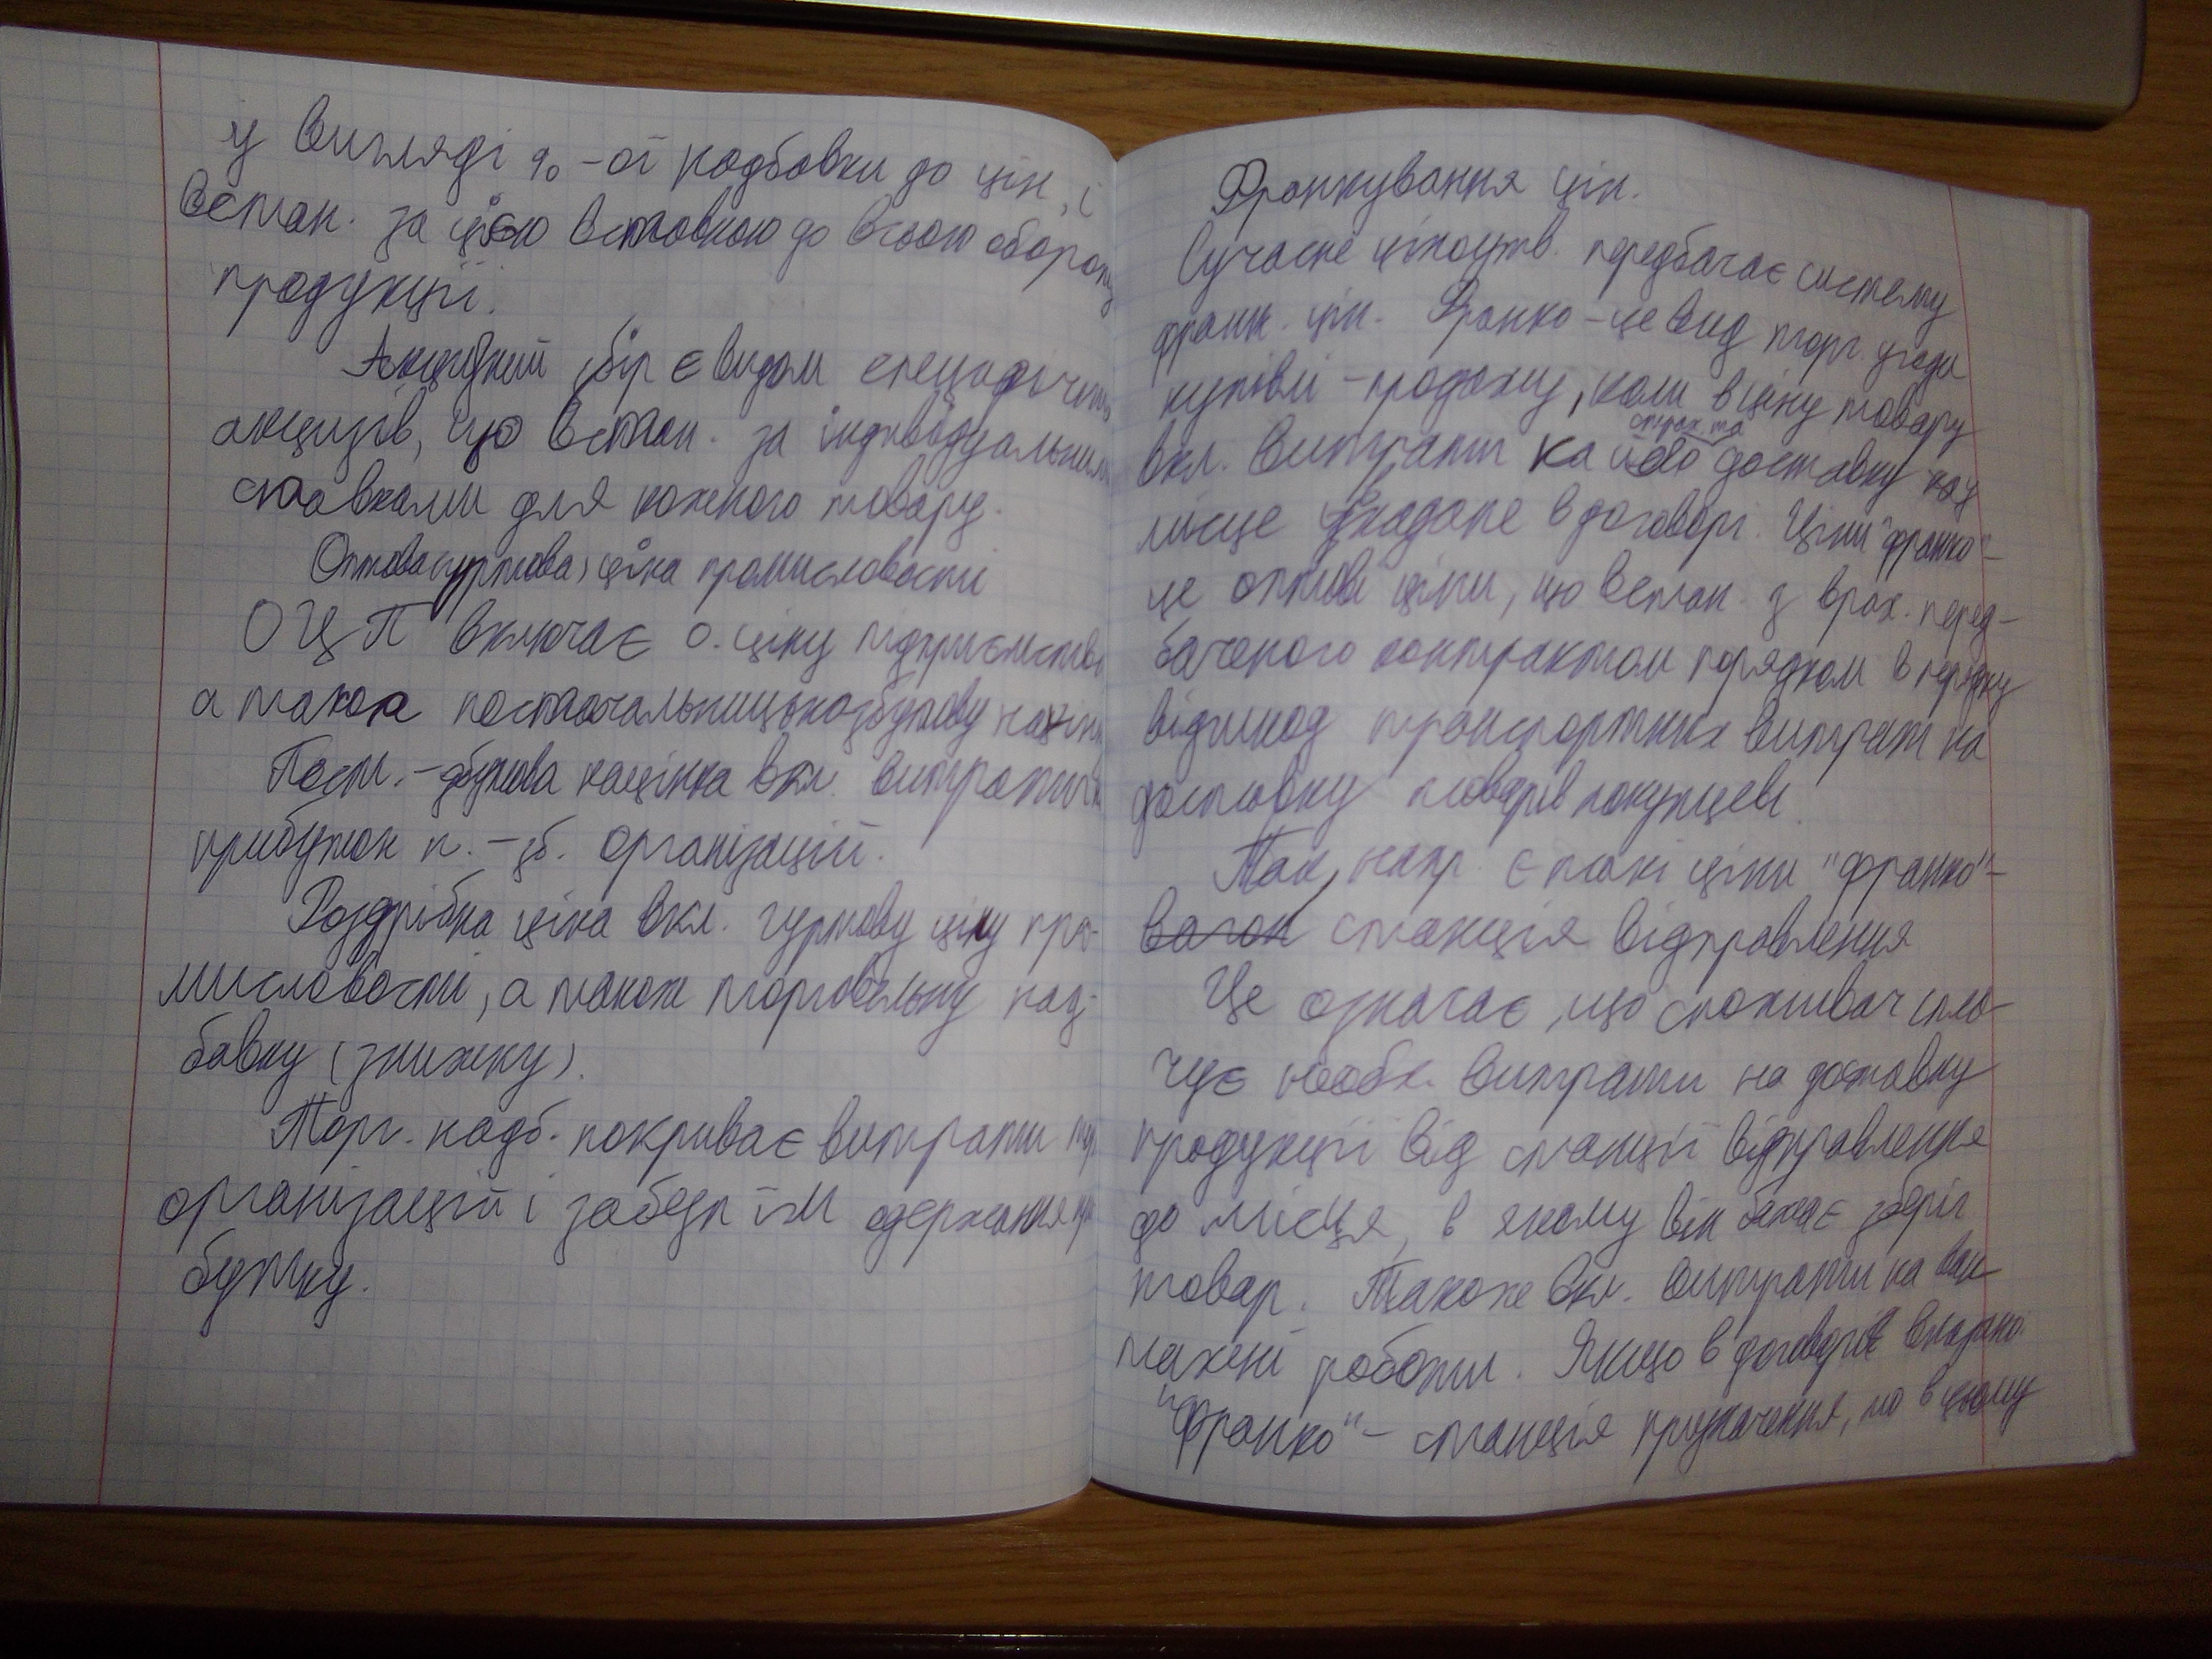 у вигляді %-ої надбавки до цін, і
встан. за цією вставкою до всього обороту
продукції.
Акцизний збір є видом специфічних
акцизів, що встан. за індивідуальними
ставками для кожного товару.
Оптова (гуртова) ціна промисловості
ОЦП включає о. ціну підприємства
а також постачальницькозбутову націнку
Пост.-збутова націнка вкл. витрати і
прибуток п.-зб. організацій.
Роздрібна ціна вкл. гуртову ціну про-
мисловості, а також торговельну над-
бавку (знижку).
Торг. надб. покриває витрати
організацій і забезп їм одержання при
бутку.
Франкування цін.
Сучасне ціноутв. передбачає систему
франк. цін. Франко - це вид торг. угоди
купівлі-продажу, коли в ціну товару
страх. та
вкл. витрати на його доставку
місце вказане в договорі. Ціни "франко"-
це оптові ціни, що встан. з врах. перед-
баченого контрактом порядком в порядку
відшкод транспортних витрат на
доставку товарів покупцеві.
Так, напр. є такі ціни "франко"-
вагон станція відправлення
Це означає, що споживач спла-
чує необх. витрати на доставку
продукції від станції відправлення
до місця, в якому він бажає зберіг
товар. Також вкл. витрати на ван-
тажні роботи. Якщо в договорі вказано
"Франко" - станція призначення, то в цьому